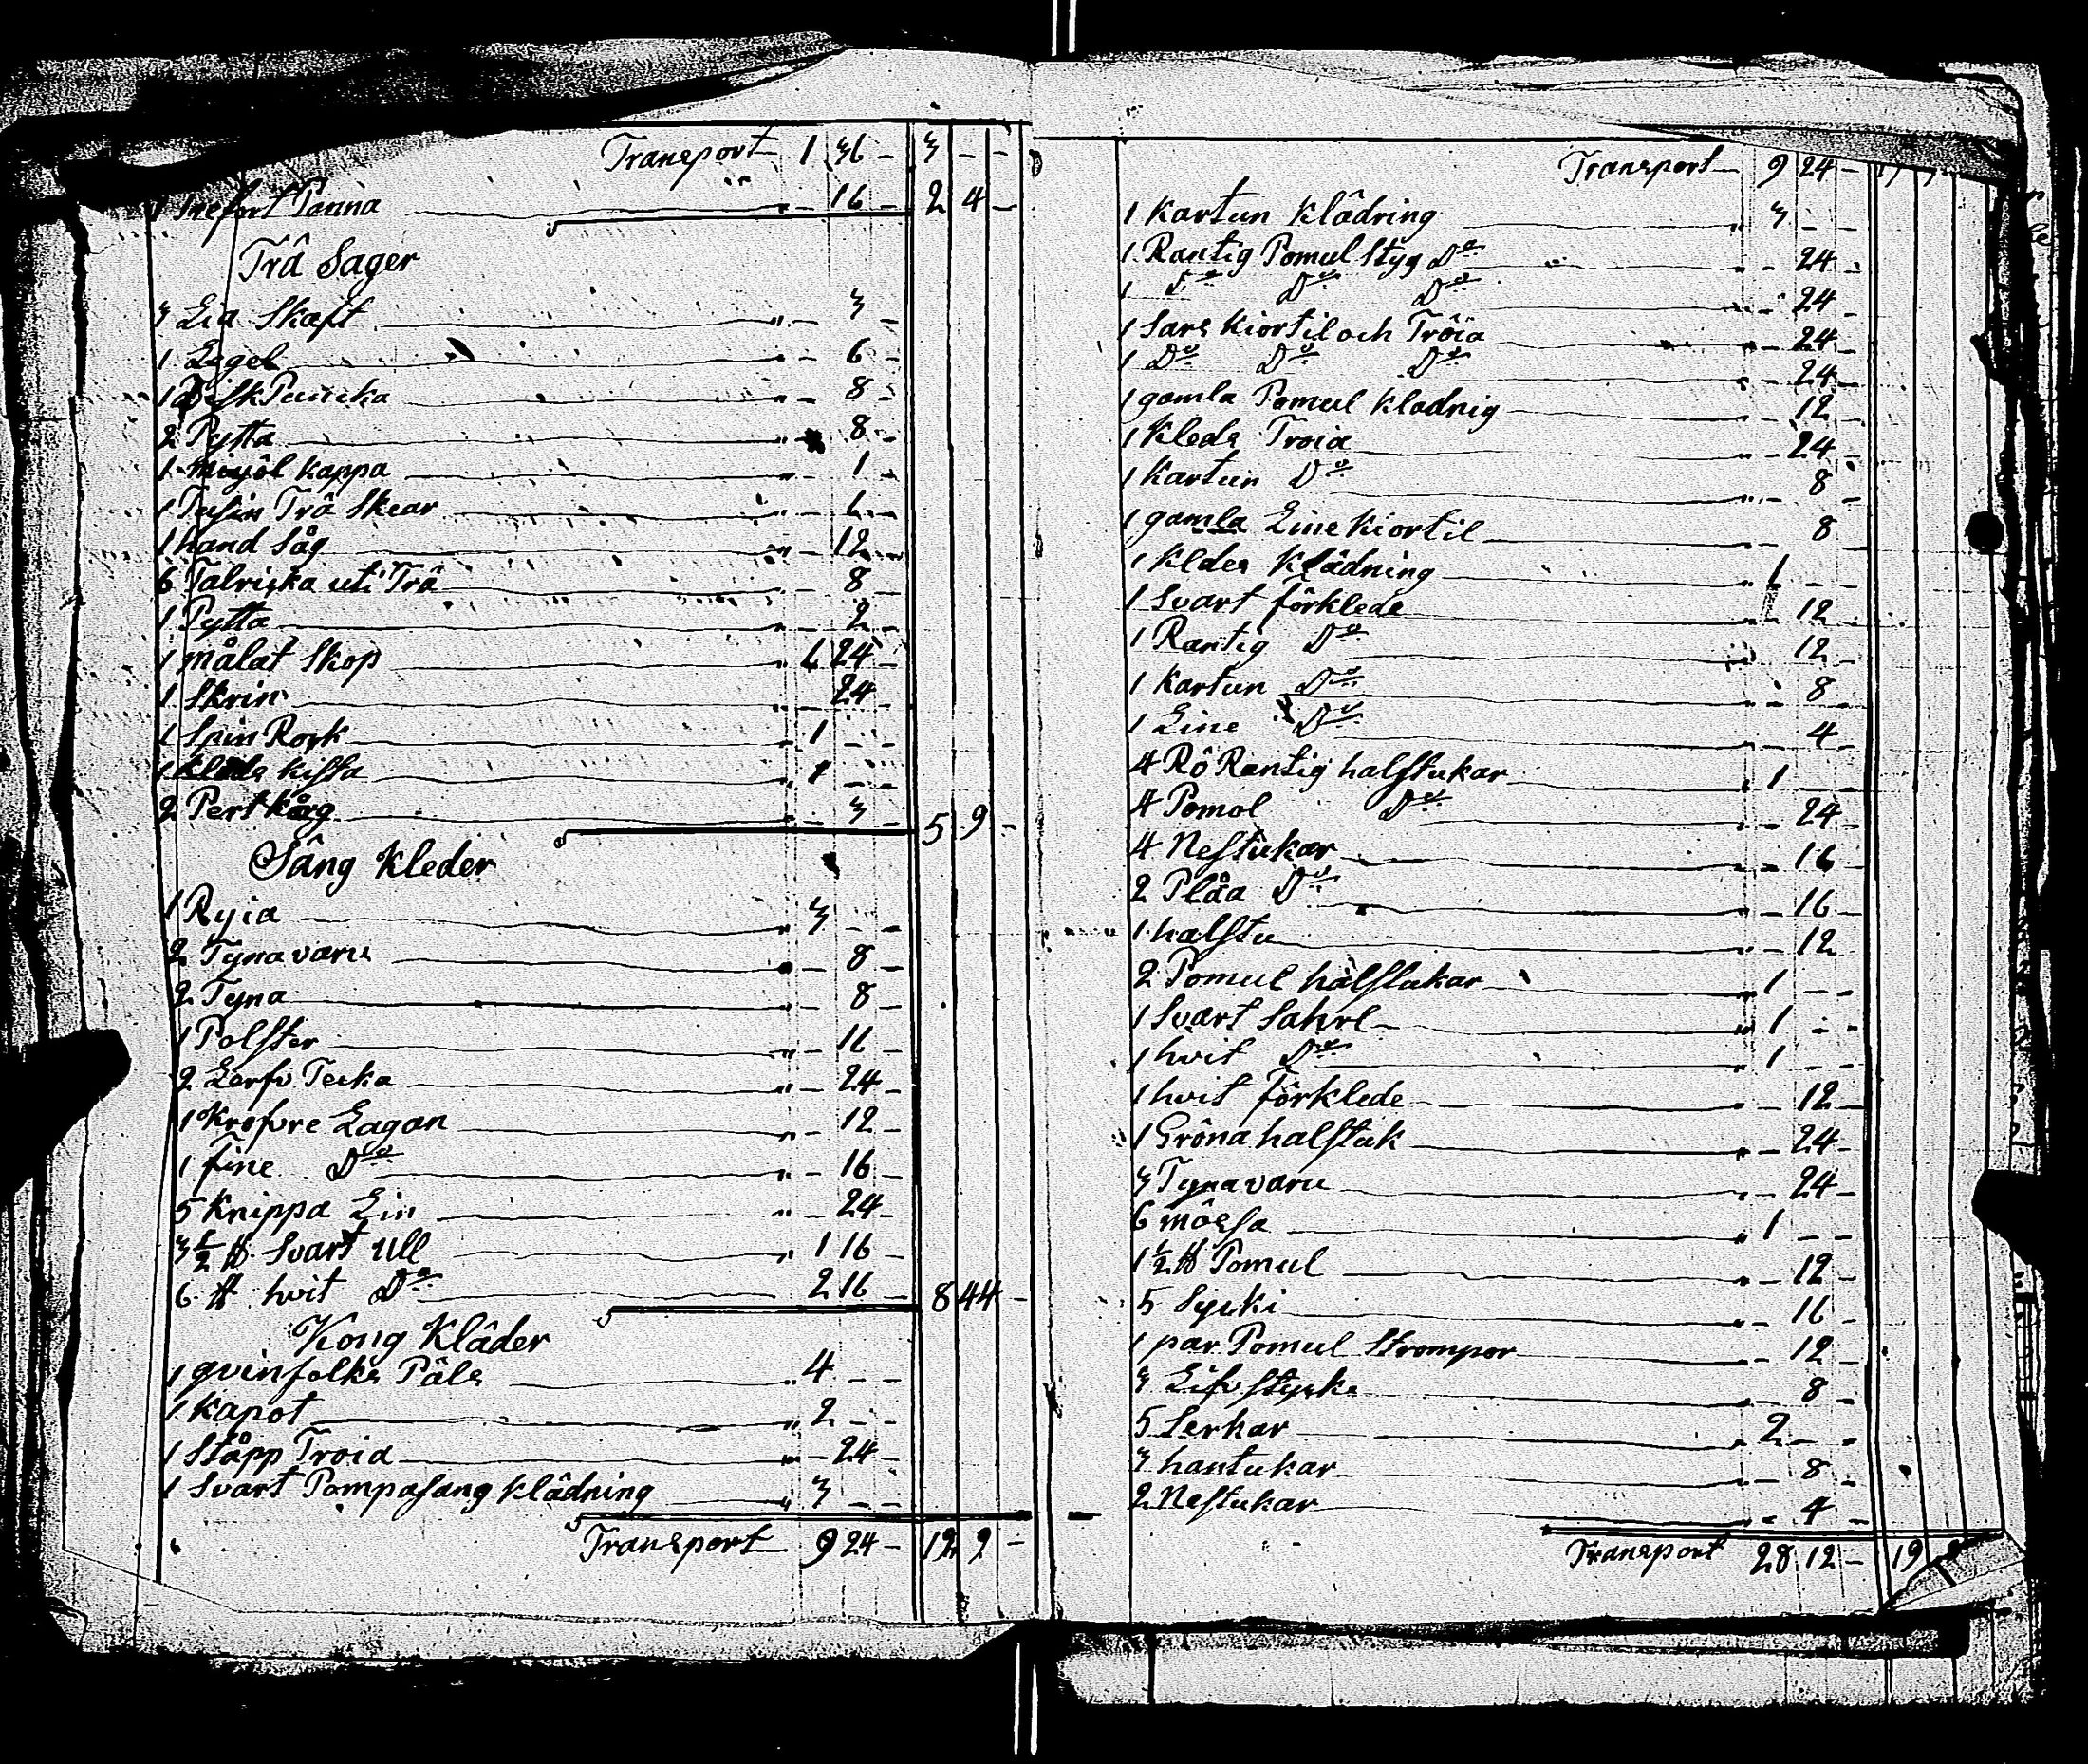 Transport 1 36 - 3 - -
1 Trefort Panna " 16 - 2 4 -
Trâ Sager
3 Lia Skaft " - 3 -
1 Legel " - 6 -
1 Disk " - 8 -
2 Pytta " - 8 -
1 miyôl kappa " - 1 -
1 Tusin Trâ Skear " - 6 -
1 hand såg " - 12 -
6 Talriska uti Trâ " - 8 -
1 Pytta " - 2 -
1 målat Skop " 1 24 -
1 Skrin " 24 -
1 Spin Rork " 1 - -
1 kleda kista " 1 - -
2 Pert kårg " - 3 - 5 9 -
Sâng kleder
1 Ryia " 3 - -
2 Tynavaru " - 8 -
2 Tyna " - 8 -
1 Polster " - 16 -
2 Lerfv Tecka " - 24 -
1 Krofvre Lagan " - 12 -
1 fine Do " - 16 -
5 Knippa Lin " - 24 -
3 1/2 ℔ Svart Ull " 1 16 -
6 ℔ hvit Do 2 16 - 8 44 -
Kong Klâder
1 qvinfolks Päls 4 - -
1 kapot " 2 - -
1 Ståpp Troia " - 24 -
1 Svart Pompasang klâdning " 3 - -
Transport 9 24 - 19 9 -
Transport 9 24 -
1 kartun klâdring " 3 - -
1 Rantig Pomul Styg Do " - 24 -
1 Do Do Do " - 24 -
1 Sars kiortil och Trôia " - 24 -
1 Do Do Do " - 24 -
1 gamla Pomul kladnig " - 12 -
1 kleds Troia " - 24 -
1 kartun Do " - 8 -
1 gamla Line kiortil " - 8 -
1 kldes klâdning " 1 - -
1 Svart förklede " - 12 -
1 Rantig Do " - 12 -
1 kartun Do " - 8 -
1 Line Do " - 4 -
4 Rô Rantig halstukar " 1 - -
4 Pomol Do " - 24 -
4 Nestukar " - 16 -
2 Plåa Do " - 16 -
1 halstu " - 12 -
2 Pomul halstukar " 1 - -
1 Svart Sahrl " 1 - -
1 hvit Do " 1 - -
1 hvit förklede " - 12 -
1 Grôna halstuk " - 24 -
3 Tynavaru " - 24 -
6 môssa " 1 - -
1 1/2 ℔ Pomul " - 12 -
5 Sycki " - 16 -
1 par Pomul Strompor " - 12 -
3 Lifv stycke " - 8 -
5 Serkar " 2 - -
3 hantukar " - 8 -
2 Nestukar " - 4 -
Transport 28 12 - 19